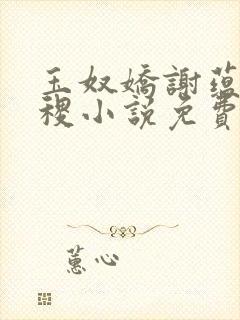 玉奴嬌謝蘊
稷小説免費
蕙心